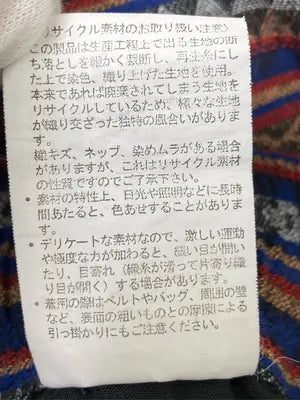 リサイクル素材のお取り扱い注意
この製品は生産工程上で出る生地の断
ち落としを細かく裁断し、再生糸にし
た上で染色、織り上げた生地を使用。
本来であれば廃棄されてしまう生地を
リサイクルしているため、様々な生地
が織り交ざった独特の風合いがありま
す。
織キズ、ネップ、染めムラがある場合
がありますが、これはリサイクル素材
の性質ですのでご了承下さい。
・素材の特性上、日光や照明などに長時
間あたると、色あせすることがありま
す。
・デリケートな素材なので、激しい運動
や極度な力が加わると、縫い目が開い
たり、目寄れ（織糸が滑って片寄り織
り目が開く）する場合があります。
・着用の際はベルトやバッグ、周囲の壁
など、表面の粗いものとの摩擦による
引っ掛かりにもご注意ください。